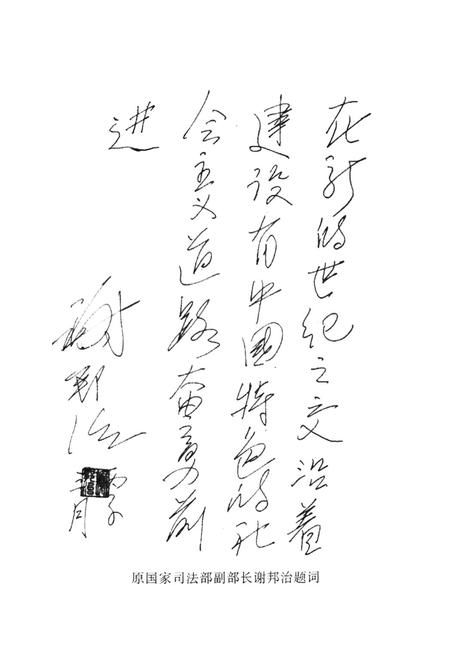 在新的世纪之交沿着
建设有中国特色的社
会主义道路奋勇前
进
谢邦治
丙子
月
原国家司法部副部长谢邦治题词